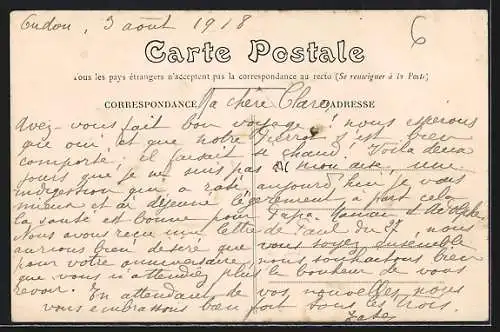 Oudon, 3 août 1918
6
Carte Postale
Tous les pays étrangers n'acceptent pas la correspondance au recto (Se renseigner à la Poste)
CORRESPONDANCE ADRESSE
Ma chère Claro,
Avez-vous fait bon voyage, nous esperons
que oui et que notre Pierrot s'est bien
comporté; il faisait si chaud. Voila deux
jours que je ne suis pas à mon aise, une
indigestion qui a raté, aujourd'hui je vais
mieux et ai déjeuné légèrement à part cela
la santé est bonne pour Papa, Maman &
Nous avons reçu une lettre de Paul du 27, nous
aurions bien désiré que vous soyez ensemble
pour votre anniversaire, nous souhaitons bien
que vous n'attendiez plus le bonheur de vous
revoir. En attendant de vos nouvelles nous
vous embrassons bien fort tous les trois.